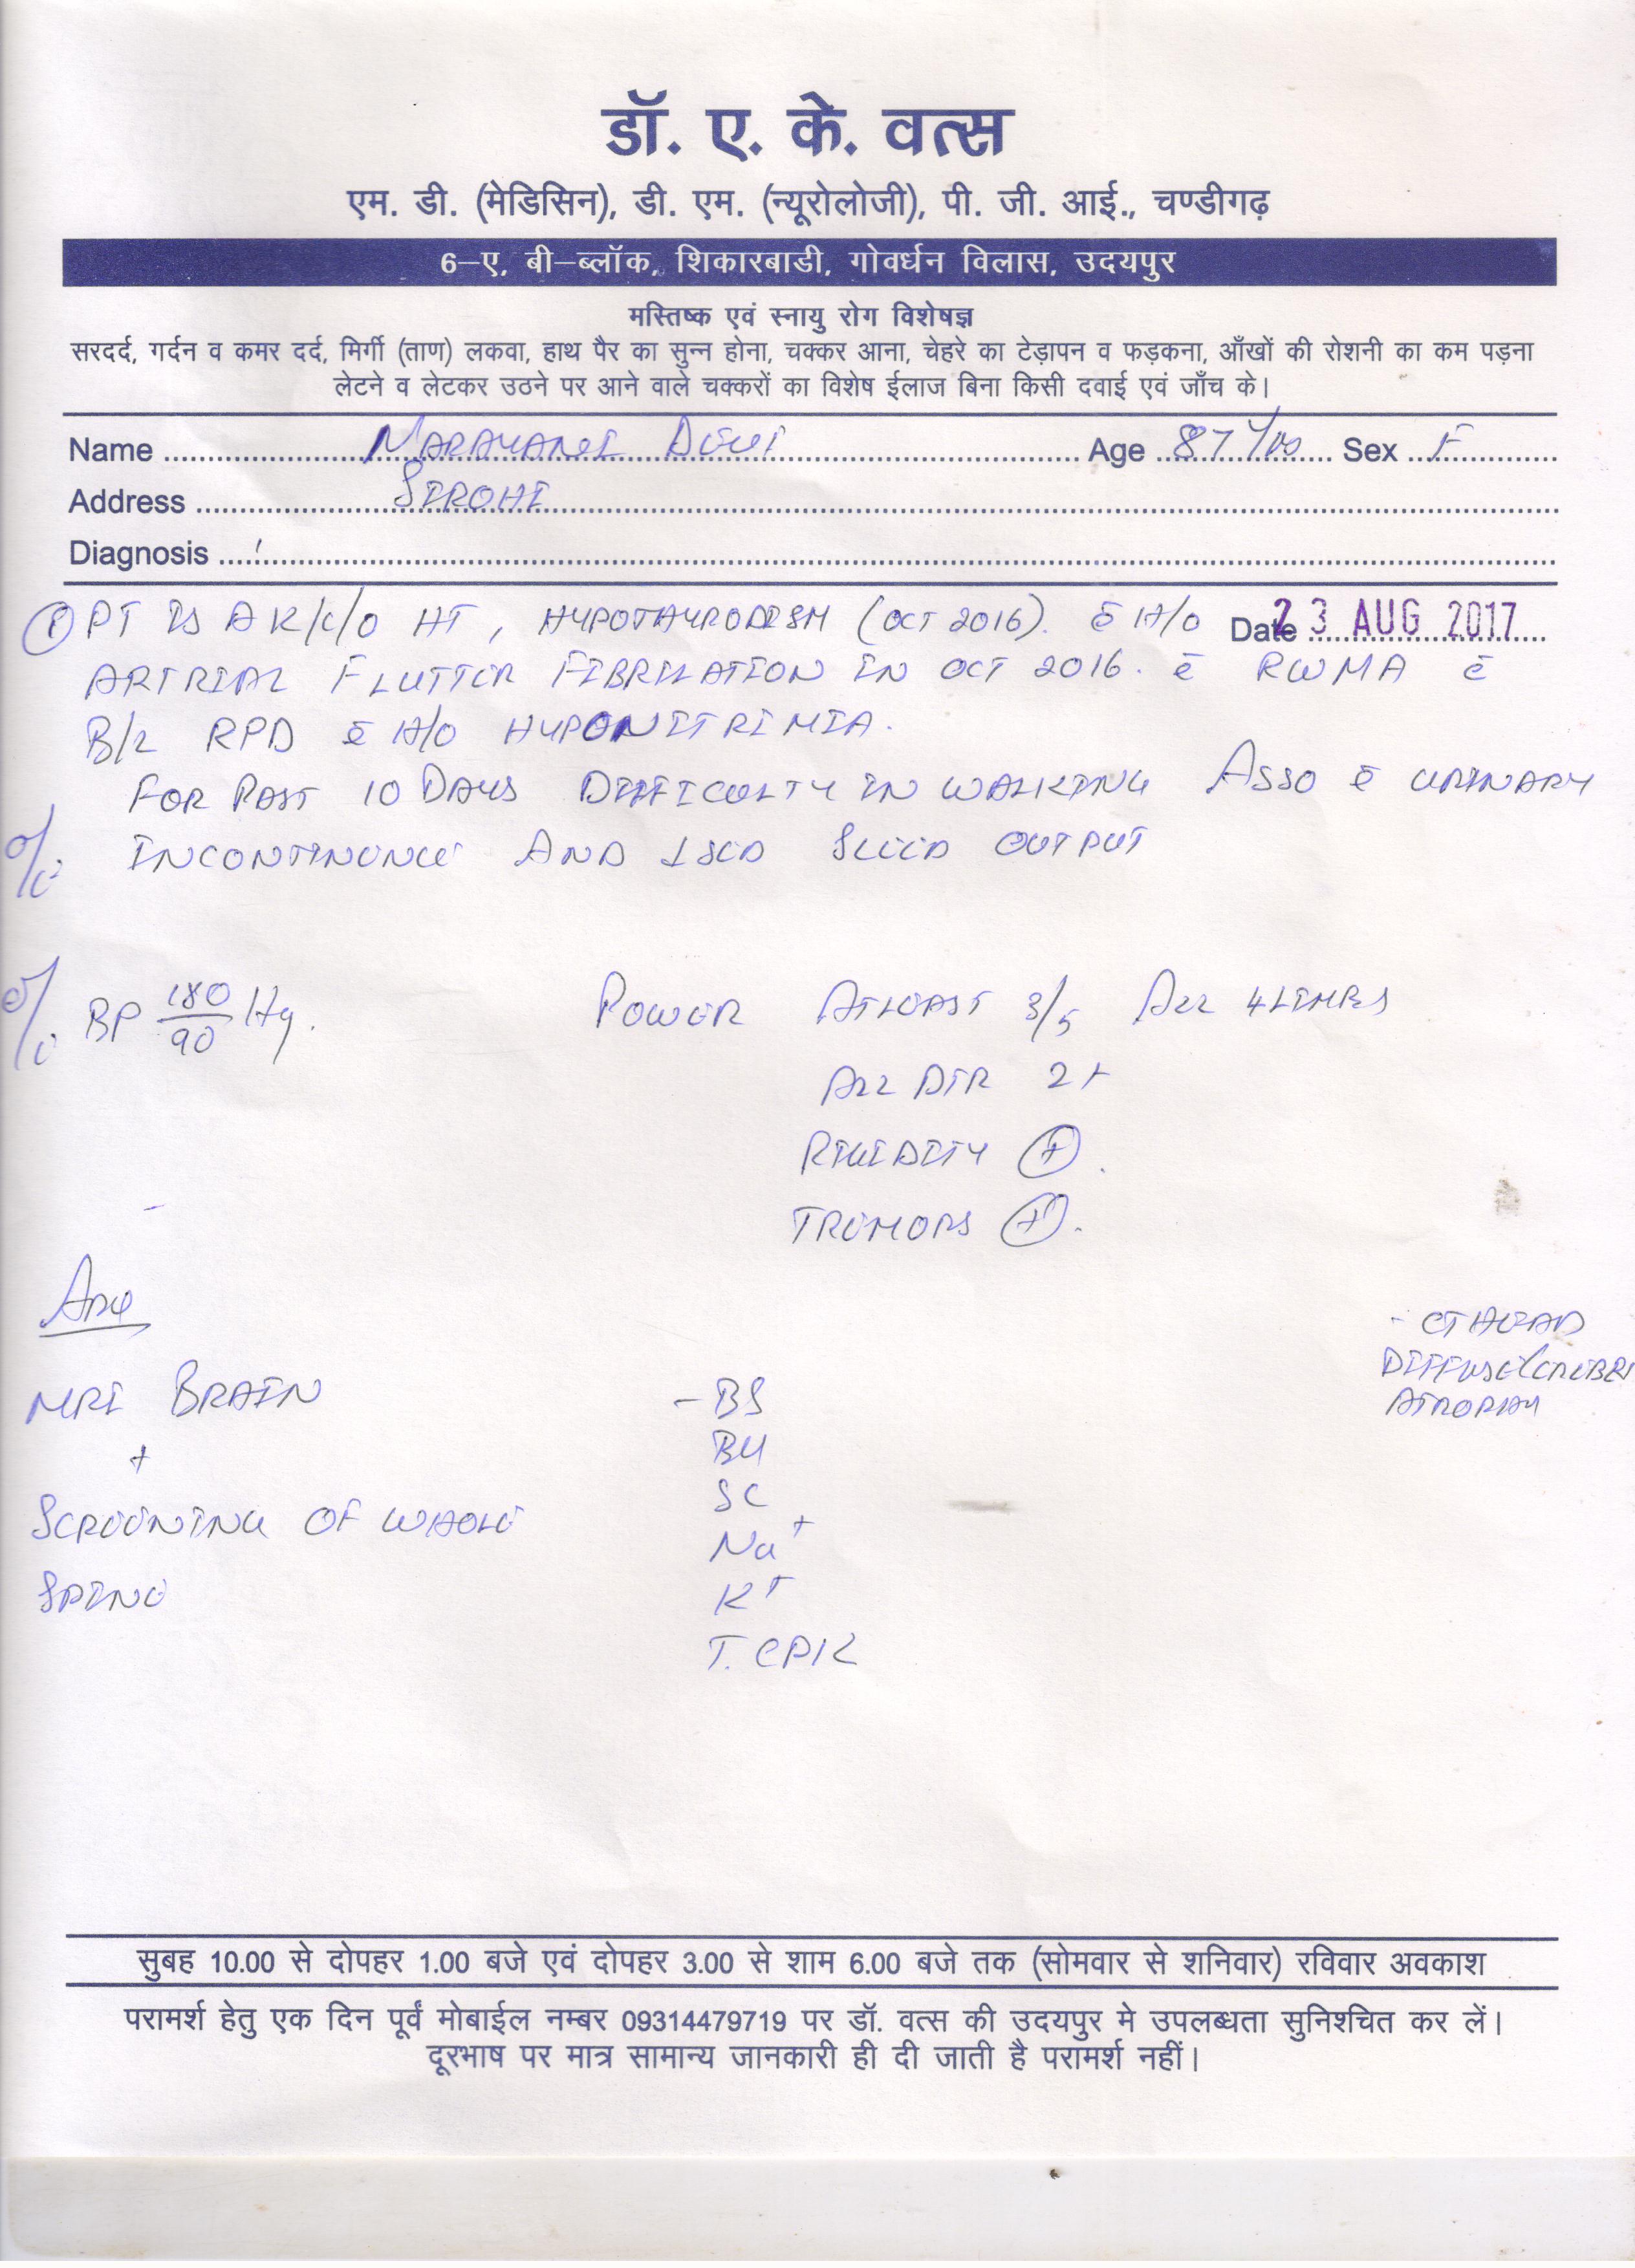 डॉ. ए. के. वत्स
एम. डी. (मेडिसिन), डी. एम. (न्यूरोलोजी), पी. जी. आई., चण्डीगढ़
6–ए, बी–ब्लॉक, शिकारबाडी, गोवर्धन विलास, उदयपुर
मस्तिष्क एवं स्नायु रोग विशेषज्ञ
सरदर्द, गर्दन व कमर दर्द, मिर्गी (ताण) लकवा, हाथ पैर का सुन्न होना, चक्कर आना, चेहरे का टेड़ापन व फड़कना, आँखों की रोशनी का कम पड़ना
लेटने व लेटकर उठने पर आने वाले चक्करों का विशेष ईलाज बिना किसी दवाई एवं जाँच के।
Name NARAYANI DEVI Age 87 Yrs Sex F
Address SIROHI
Diagnosis
PT IS A K/C/O HT, HYPOTHYRODISM (OCT 2016). c̄ H/O Date 23 AUG 2017
ARTRIAL FLUTTER FIBRILATION IN OCT 2016. c̄ RWMA c̄
B/L RPD c̄ H/O HYPONITRIMIA.
FOR PAST 10 DAYS DIFFICULTY IN WALKING ASSO c̄ URINARY
C/O INCONTINENCE AND OUTPUT
O/E BP 180/90 Hg. POWER ATLEAST 3/5 ALL 4 LIMBS
ALL DTR 2+
RIGIDITY (+).
TREMORS (+).
Adv
- CT HEAD
DIFFUSE CEREBRAL
ATROPHY
MRI BRAIN
+
SCREENING OF WHOLE
SPINE
- BS
BU
SC
Na+
K+
T. CPK
सुबह 10.00 से दोपहर 1.00 बजे एवं दोपहर 3.00 से शाम 6.00 बजे तक (सोमवार से शनिवार) रविवार अवकाश
परामर्श हेतु एक दिन पूर्वं मोबाईल नम्बर 09314479719 पर डॉ. वत्स की उदयपुर मे उपलब्धता सुनिश्चित कर लें।
दूरभाष पर मात्र सामान्य जानकारी ही दी जाती है परामर्श नहीं।